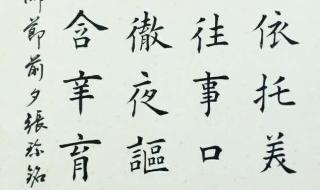 依托美
往事口
徹夜謳
含辛育
師節前夕張珍銘